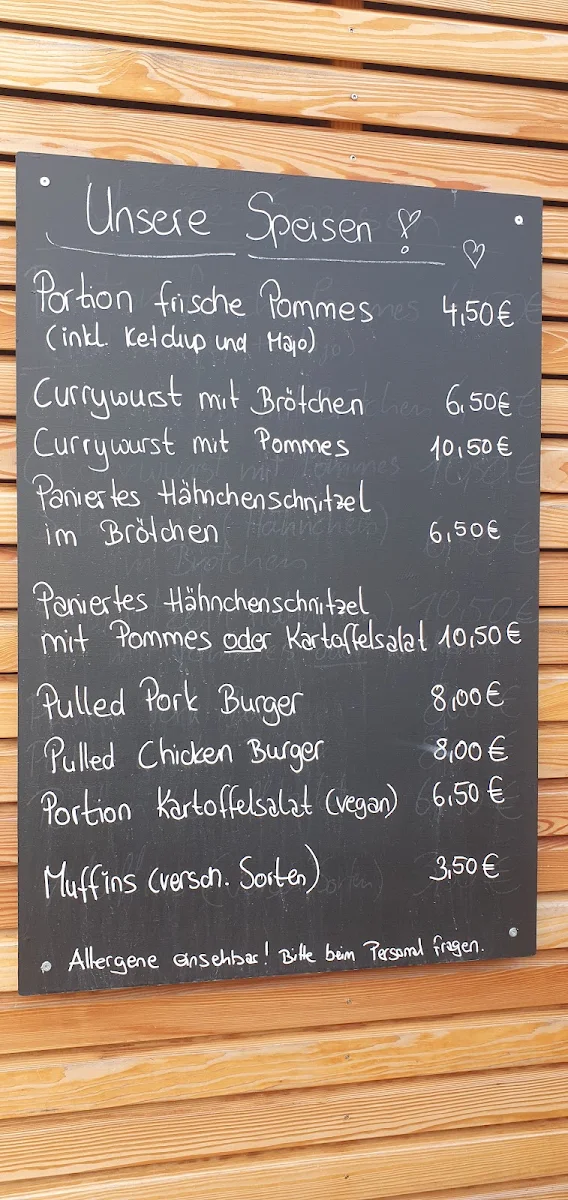 Unsere Speisen!
Portion frische Pommes 4,50€
(inkl. Ketchup und Majo)
Currywurst mit Brötchen 6,50€
Currywurst mit Pommes 10,50€
Paniertes Hähnchenschnitzel
im Brötchen 6,50€
Paniertes Hähnchenschnitzel
mit Pommes oder Kartoffelsalat 10,50€
Pulled Pork Burger 8,00€
Pulled Chicken Burger 8,00€
Portion Kartoffelsalat (vegan) 6,50€
Muffins (versch. Sorten) 3,50€
Allergene einsehbar! Bitte beim Personal fragen.